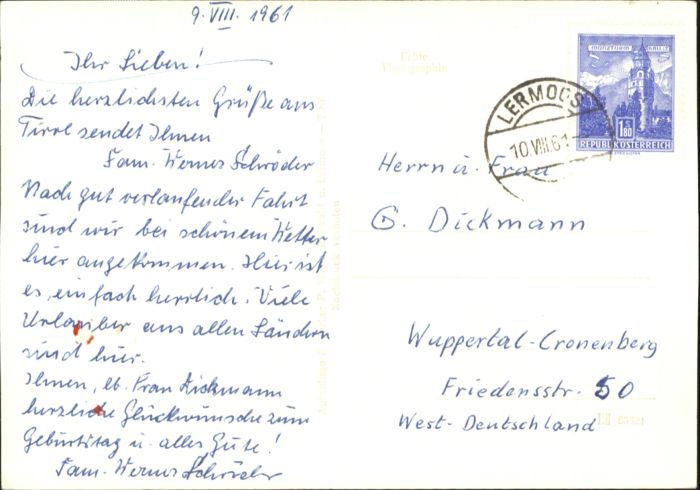 9. VIII. 1961
Ihr Lieben!
Die herzlichsten Grüße aus
Tirol sendet Ihnen
Fam. Werner Schröder
Nach gut verlaufender Fahrt
sind wir bei schönem Wetter
hier angekommen. Hier ist
es einfach herrlich. Viele
Urlauber aus allen Ländern
sind hier.
Ihnen, lb. Frau Dickmann
herzliche Glückwünsche zum
Geburtstag u. alles Gute!
Fam. Werner Schröder
Echte
Photographie
MÜNZTURM HALL i. T.
1.80
REPUBLIK ÖSTERREICH
LERMOOS
10.VIII.61
Herrn u. Frau
G. Dickmann
Wuppertal-Cronenberg
Friedensstr. 50
West-Deutschland